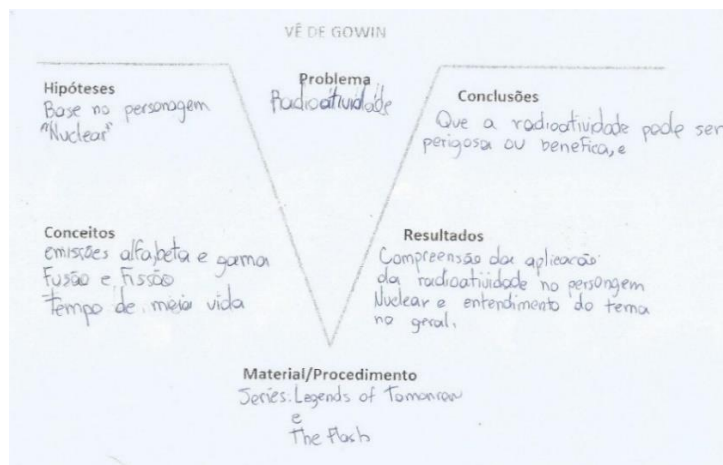 VÊ DE GOWIN
Problema
Radioatividade
Hipóteses
Base no personagem
"Nuclear"
Conceitos
emissões alfa, beta e gama
Fusão e Fissão
Tempo de meia vida
Conclusões
Que a radioatividade pode ser
perigosa ou benefica, e
Resultados
Compreensão da aplicação
da radioatividade no persongem
Nuclear e entendimento do tema
no geral.
Material/Procedimento
Series: Legends of Tomorrow
e
The Flash